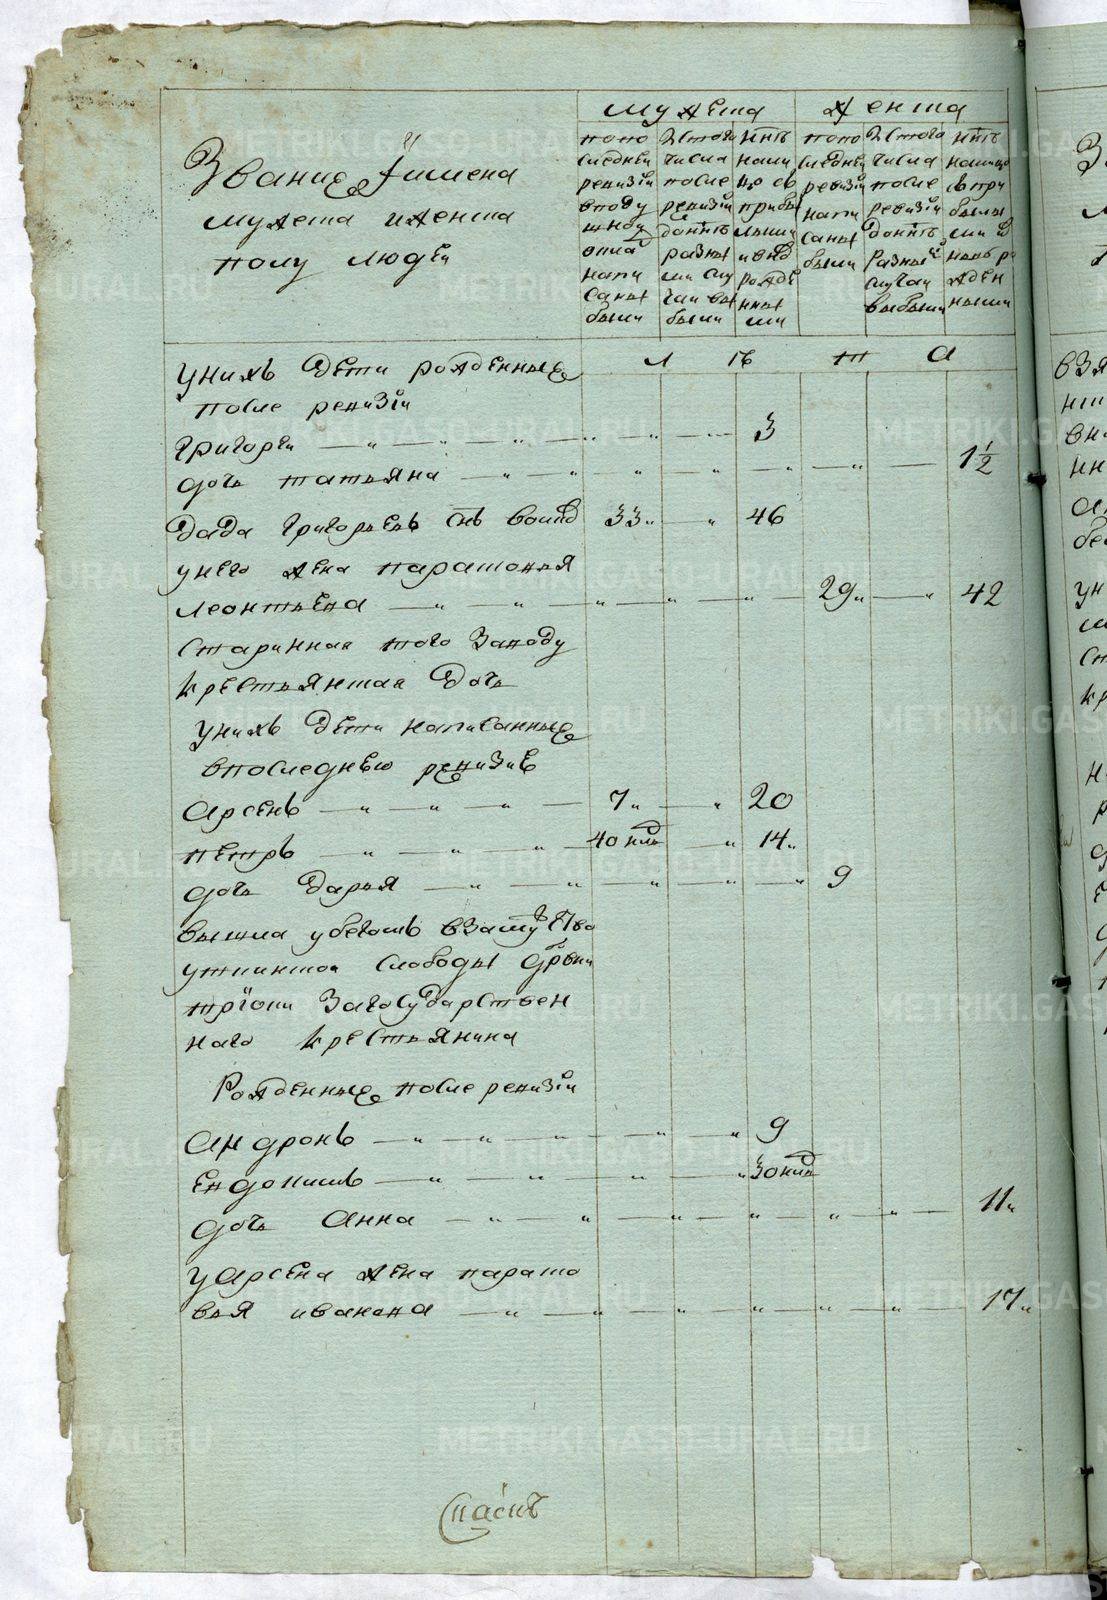 Звание и имена
мужеска и женска
полу людей
мужеска
попо
следней
ревизии
вподу
шной
оклад
напи
саны
были
Истого
числа
после
ревизии
донне
разны
ми слу
чаи вы
были
нне
нали
цо съ
прибы
лыми
ивнов
рожде
нны
ми
женска
попо
следней
ревизии
напи
саны
были
Истого
числа
после
ревизии
донне
разныи
случаи
выбыли
нне
налицо
съ при
былы
ми и
вновь ро
жден
ными
л ѣ т а
унихъ дети рожденные
после ревизии
Григореи 3
дочь татьяна 1½
Григорьевъ снъ 33 46
унего жена парасковья
леонтьева 29 42
старинная того Заводу
крестьянская дочь
унихъ дети написанные
впоследнею ревизие
Арсенъ 7 20
петръ 40 нлд 14
дочь дарья 9
вышла убегомъ взамужство
уткинской слободы дрвни
трiоки Загосударствен
наго крестьянина
Рожденные после ревизии
Андронъ 9
Евдокимъ 30 нлд
дочь Анна 11
уарсена жена параско
вья иванова 17
METRIKI.GASO-URAL.RU